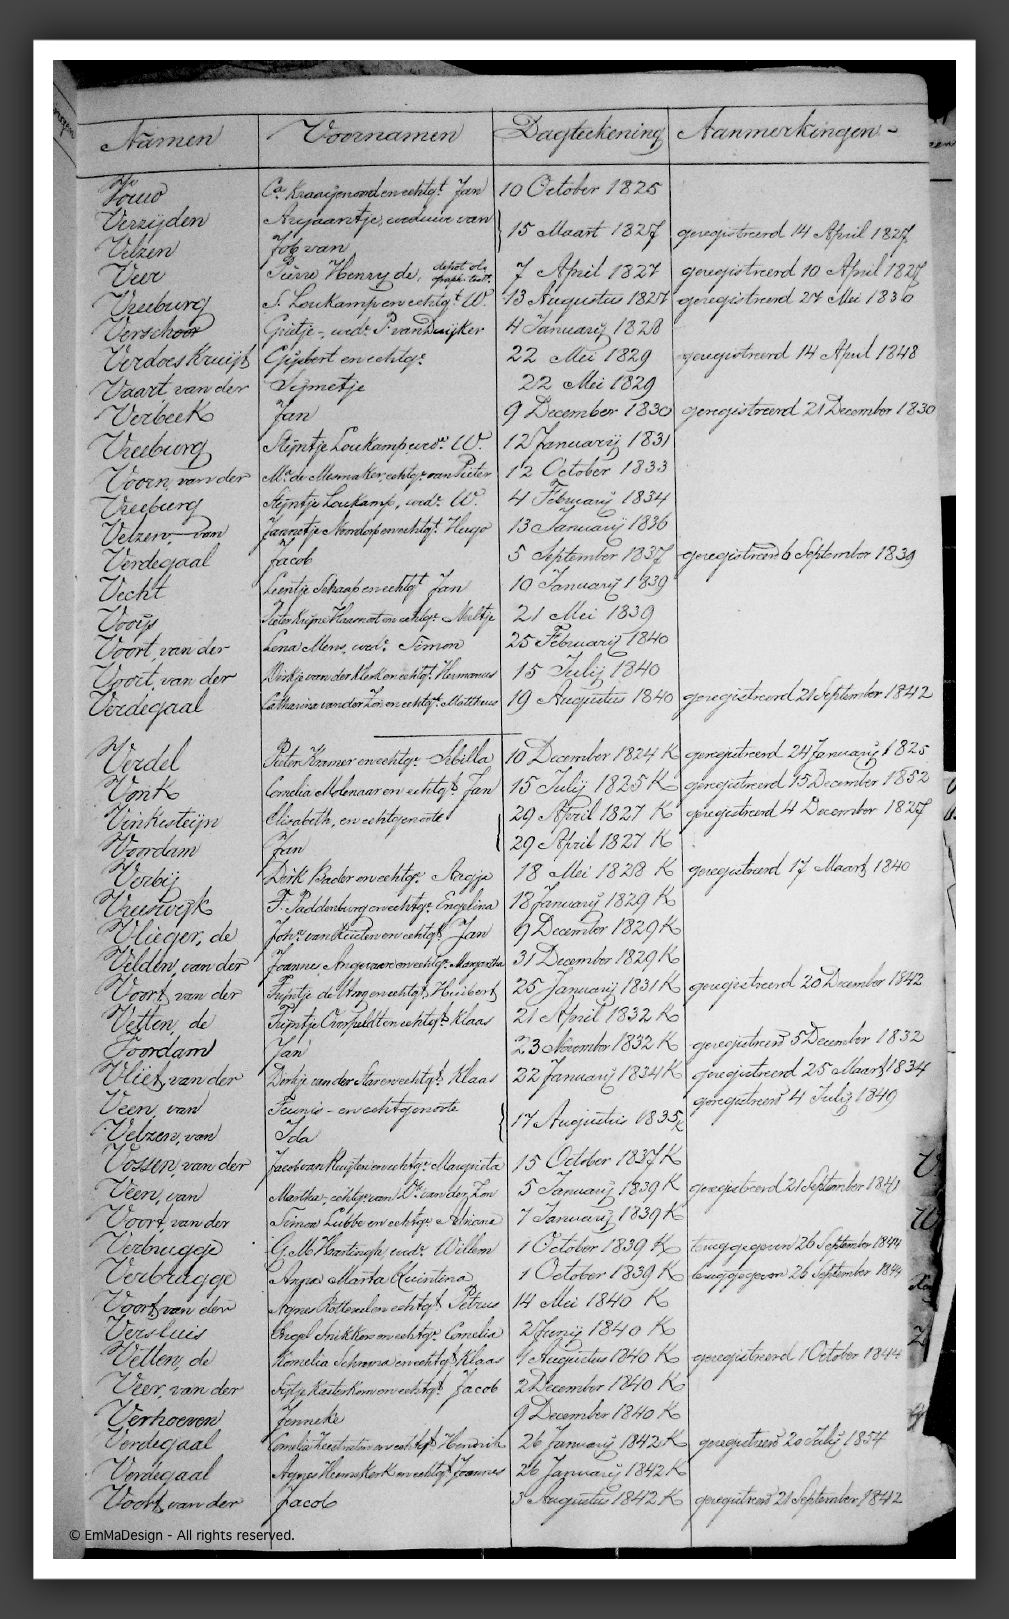 Namen Voornamen Dagteekening Aanmerkingen
Ca. Kraaijenoord en echtgt. Jan 10 October 1825
Verzijden Arijaantje, weduwe van
Velzen Job van 15 Maart 1827 geregistreerd 14 April 1827
Veer Pierre Henry de, 7 April 1827 geregistreerd 10 April 1827
Vreeburg S. Loukamp en echtgt. W. 13 Augustus 1827 geregistreerd 27 Mei 1830
Verschoor Grietje - wede. P. van Duijker 4 Januarij 1828
Verdoes Kruijt Gijsbert en echtge. 22 Mei 1829 geregistreerd 14 April 1848
Vaart, van der Sijmetje 22 Mei 1829
Verbeek Jan 9 December 1830 geregistreerd 21 December 1830
Vreeburg Stijntje Loukamp wede. W. 12 Januarij 1831
Voorn, van der Ma. de Mesmaker, echtge. van Pieter 12 October 1833
Vreeburg Stijntje Loukamp, wede. W. 4 Februarij 1834
Velzen, van Jannetje Noordop en echtgt. Hugo 13 Januarij 1836
Verdegaal Jacob 5 September 1837 geregistreerd 6 September 1839
Vecht Leentje Schaap en echtgt. Jan 10 Januarij 1839
Vooijs Pieter Krijne en echtge. Neeltje 21 Mei 1839
Voort, van der Lena Mens, wede. Simon 25 Februarij 1840
Voort, van der Dirkje van der Klerk en echtgt. Hermanus 15 Julij 1840
Verdegaal Catharina van der Zon en echtgt. Mattheus 19 Augustus 1840 geregistreerd 21 September 1842
Verdel Pieter Kramer en echtge. Sibilla 10 December 1824 K geregistreerd 24 Januarij 1825
Vonk Cornelia Molenaar en echtgt. Jan 15 Julij 1825 K geregistreerd 15 December 1852
Vinkesteijn Elisabeth, en echtgenoote 29 April 1827 K geregistreerd 4 December 1827
Voordam Jan 29 April 1827 K
Verbij Dirk Bader en echtge. Argje 18 Mei 1828 K geregistreerd 17 Maart 1840
Vreeswijk F. Paddenburg en echtge. Engelina 18 Januarij 1829 K
Vlieger, de Johs. van Ruiten en echtgt. Jan 9 December 1829 K
Velden, van der Joannes Angevaare en echtge. Margaretha 31 December 1829 K
Voort, van der Trijntje de Jong en echtgt. Huibert 25 Januarij 1831 K geregistreerd 20 December 1842
Vetten, de Trijntje Overfeldt en echtgt. Klaas 21 April 1832 K
Voordam Jan 23 November 1832 K geregistreerd 5 December 1832
Vliet, van der Dirkje van der Star en echtgt. Klaas 22 Januarij 1834 K geregistreerd 25 Maart 1834
Veen, van Teunis - en echtgenoote geregistreerd 4 Julij 1849
Velzen, van Ida 17 Augustus 1835 K
Vossen, van der Jacob van Ruijten en echtge. Margrieta 15 October 1837 K
Veen, van Martha, echtge. van Dk. van der Zon 5 Januarij 1839 K geregistreerd 21 September 1841
Voort, van der Simon Lubbe en echtge. Adriana 7 Januarij 1839 K
Verbrugge G. M. Hartingh, wede. Willem 1 October 1839 K teruggegeven 26 September 1844
Verbrugge Anna Maria Quintena 1 October 1839 K teruggegeven 26 September 1844
Voort, van der Agnes Rotteveel en echtgt. Petrus 14 Mei 1840 K
Versluis Engel Snikker en echtge. Cornelia 2 Junij 1840 K
Vetten, de Kornelia Schrama en echtgt. Klaas 4 Augustus 1840 K geregistreerd 1 October 1844
Veer, van der Sijtje Kasterkorn en echtgt. Jacob 2 December 1840 K
Verhoeven Jenneke 9 December 1840 K
Verdegaal Cornelia en echtgt. Hendrik 26 Januarij 1842 K geregistreerd 20 Julij 1854
Verdegaal Agnes Heemskerk en echtgt. Joannes 26 Januarij 1842 K
Voort, van der Jacob 3 Augustus 1842 K geregistreerd 21 September 1842
© EmMaDesign - All rights reserved.